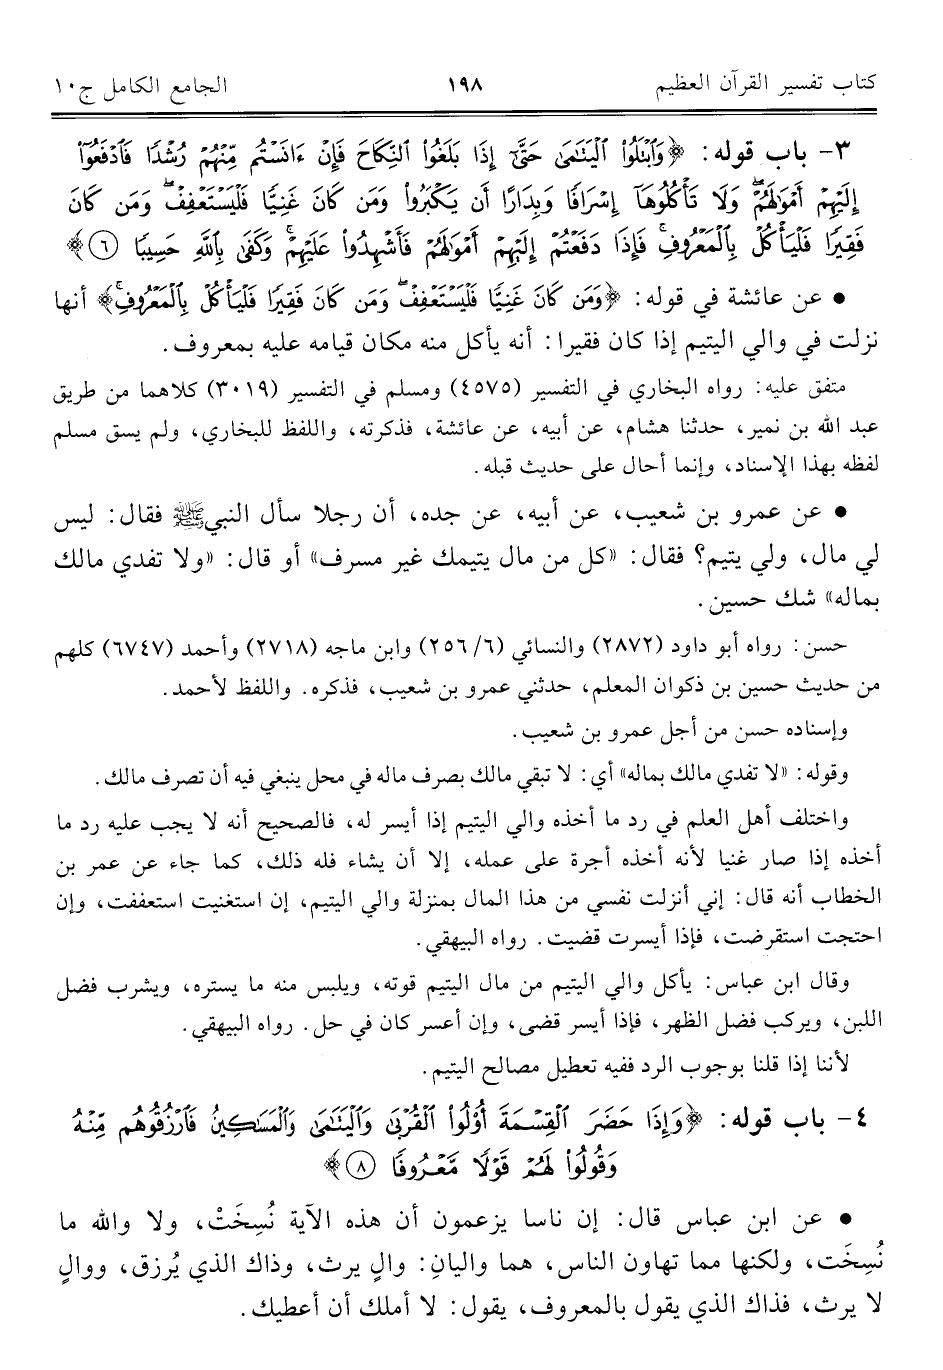 كتاب تفسير القرآن العظيم ١٩٨ الجامع الكامل ج١٠
٣- باب قوله: ﴿وَٱبْتَلُوا۟ ٱلْيَتَٰمَىٰ حَتَّىٰٓ إِذَا بَلَغُوا۟ ٱلنِّكَاحَ فَإِنْ ءَانَسْتُم مِّنْهُمْ رُشْدًا فَٱدْفَعُوٓا۟
إِلَيْهِمْ أَمْوَٰلَهُمْ ۖ وَلَا تَأْكُلُوهَآ إِسْرَافًا وَبِدَارًا أَن يَكْبَرُوا۟ ۚ وَمَن كَانَ غَنِيًّا فَلْيَسْتَعْفِفْ ۖ وَمَن كَانَ
فَقِيرًا فَلْيَأْكُلْ بِٱلْمَعْرُوفِ ۚ فَإِذَا دَفَعْتُمْ إِلَيْهِمْ أَمْوَٰلَهُمْ فَأَشْهِدُوا۟ عَلَيْهِمْ ۚ وَكَفَىٰ بِٱللَّهِ حَسِيبًا ٦﴾
• عن عائشة في قوله: ﴿وَمَن كَانَ غَنِيًّا فَلْيَسْتَعْفِفْ ۖ وَمَن كَانَ فَقِيرًا فَلْيَأْكُلْ بِٱلْمَعْرُوفِ ۚ﴾ أنها
نزلت في والي اليتيم إذا كان فقيرا: أنه يأكل منه مكان قيامه عليه بمعروف.
متفق عليه: رواه البخاري في التفسير (٤٥٧٥) ومسلم في التفسير (٣٠١٩) كلاهما من طريق
عبد الله بن نمير، حدثنا هشام، عن أبيه، عن عائشة، فذكرته، واللفظ للبخاري، ولم يسق مسلم
لفظه بهذا الإسناد، وإنما أحال على حديث قبله.
• عن عمرو بن شعيب، عن أبيه، عن جده، أن رجلا سأل النبي ﷺ فقال: ليس
لي مال، ولي يتيم؟ فقال: «كل من مال يتيمك غير مسرف» أو قال: «ولا تفدي مالك
بماله» شك حسين.
حسن: رواه أبو داود (٢٨٧٢) والنسائي (٢٥٦/٦) وابن ماجه (٢٧١٨) وأحمد (٦٧٤٧) كلهم
من حديث حسين بن ذكوان المعلم، حدثني عمرو بن شعيب، فذكره. واللفظ لأحمد.
وإسناده حسن من أجل عمرو بن شعيب.
وقوله: «لا تفدي مالك بماله» أي: لا تبقي مالك بصرف ماله في محل ينبغي فيه أن تصرف مالك.
واختلف أهل العلم في رد ما أخذه والي اليتيم إذا أيسر له، فالصحيح أنه لا يجب عليه رد ما
أخذه إذا صار غنيا لأنه أخذه أجرة على عمله، إلا أن يشاء فله ذلك، كما جاء عن عمر بن
الخطاب أنه قال: إني أنزلت نفسي من هذا المال بمنزلة والي اليتيم، إن استغنيت استعففت، وإن
احتجت استقرضت، فإذا أيسرت قضيت. رواه البيهقي.
وقال ابن عباس: يأكل والي اليتيم من مال اليتيم قوته، ويلبس منه ما يستره، ويشرب فضل
اللبن، ويركب فضل الظهر، فإذا أيسر قضى، وإن أعسر كان في حل. رواه البيهقي.
لأننا إذا قلنا بوجوب الرد ففيه تعطيل مصالح اليتيم.
٤- باب قوله: ﴿وَإِذَا حَضَرَ ٱلْقِسْمَةَ أُو۟لُوا۟ ٱلْقُرْبَىٰ وَٱلْيَتَٰمَىٰ وَٱلْمَسَٰكِينُ فَٱرْزُقُوهُم مِّنْهُ
وَقُولُوا۟ لَهُمْ قَوْلًا مَّعْرُوفًا ٨﴾
• عن ابن عباس قال: إن ناسا يزعمون أن هذه الآية نُسِخَتْ، ولا والله ما
نُسِخَت، ولكنها مما تهاون الناس، هما واليانِ: والٍ يرث، وذاك الذي يُرزق، ووالٍ
لا يرث، فذاك الذي يقول بالمعروف، يقول: لا أملك أن أعطيك.